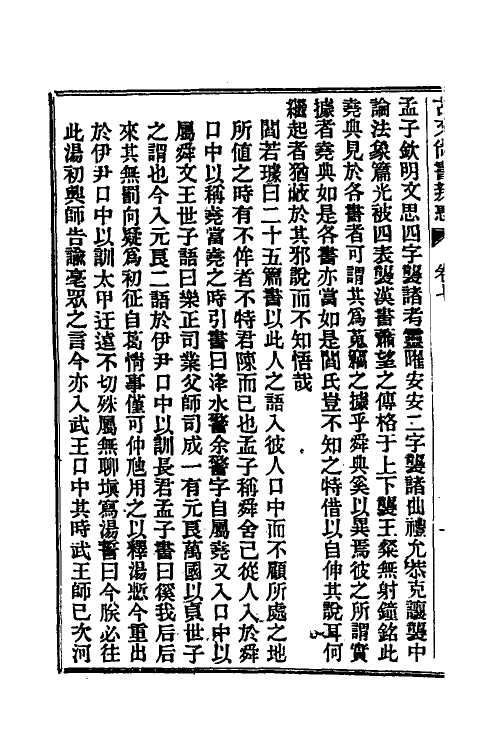 古文尚書辨惑　卷七
孟子欽明文思四字襲諸考靈曜安安二字襲諸曲禮允恭克讓襲中
論法象篇光被四表襲漢書蕭望之傳格于上下襲王粲無射鐘銘此
堯典見於各書者可謂其爲蒐竊之據乎舜典奚以異焉彼之所謂實
據者堯典如是各書亦當如是閻氏豈不知之特借以自伸其說耳何
繼起者猶蔽於其邪說而不知悟哉
閻若璩曰二十五篇書以此人之語入彼人口中而不顧所處之地
所値之時有不侔者不特君陳而已也孟子稱舜舍己從人入於舜
口中以稱堯當堯之時引書曰洚水警余警字自屬堯又入口中以
屬舜文王世子語曰樂正司業父師司成一有元良萬國以貞世子
之謂也今入元良二語於伊尹口中以訓長君孟子書曰徯我后后
來其無罰向疑爲初征自葛情事僅可仲虺用之以釋湯慙今重出
於伊尹口中以訓太甲迂遠不切殊屬無聊塡寫湯誓曰今朕必往
此湯初興師告諭亳眾之言今亦入武王口中其時武王師已次河